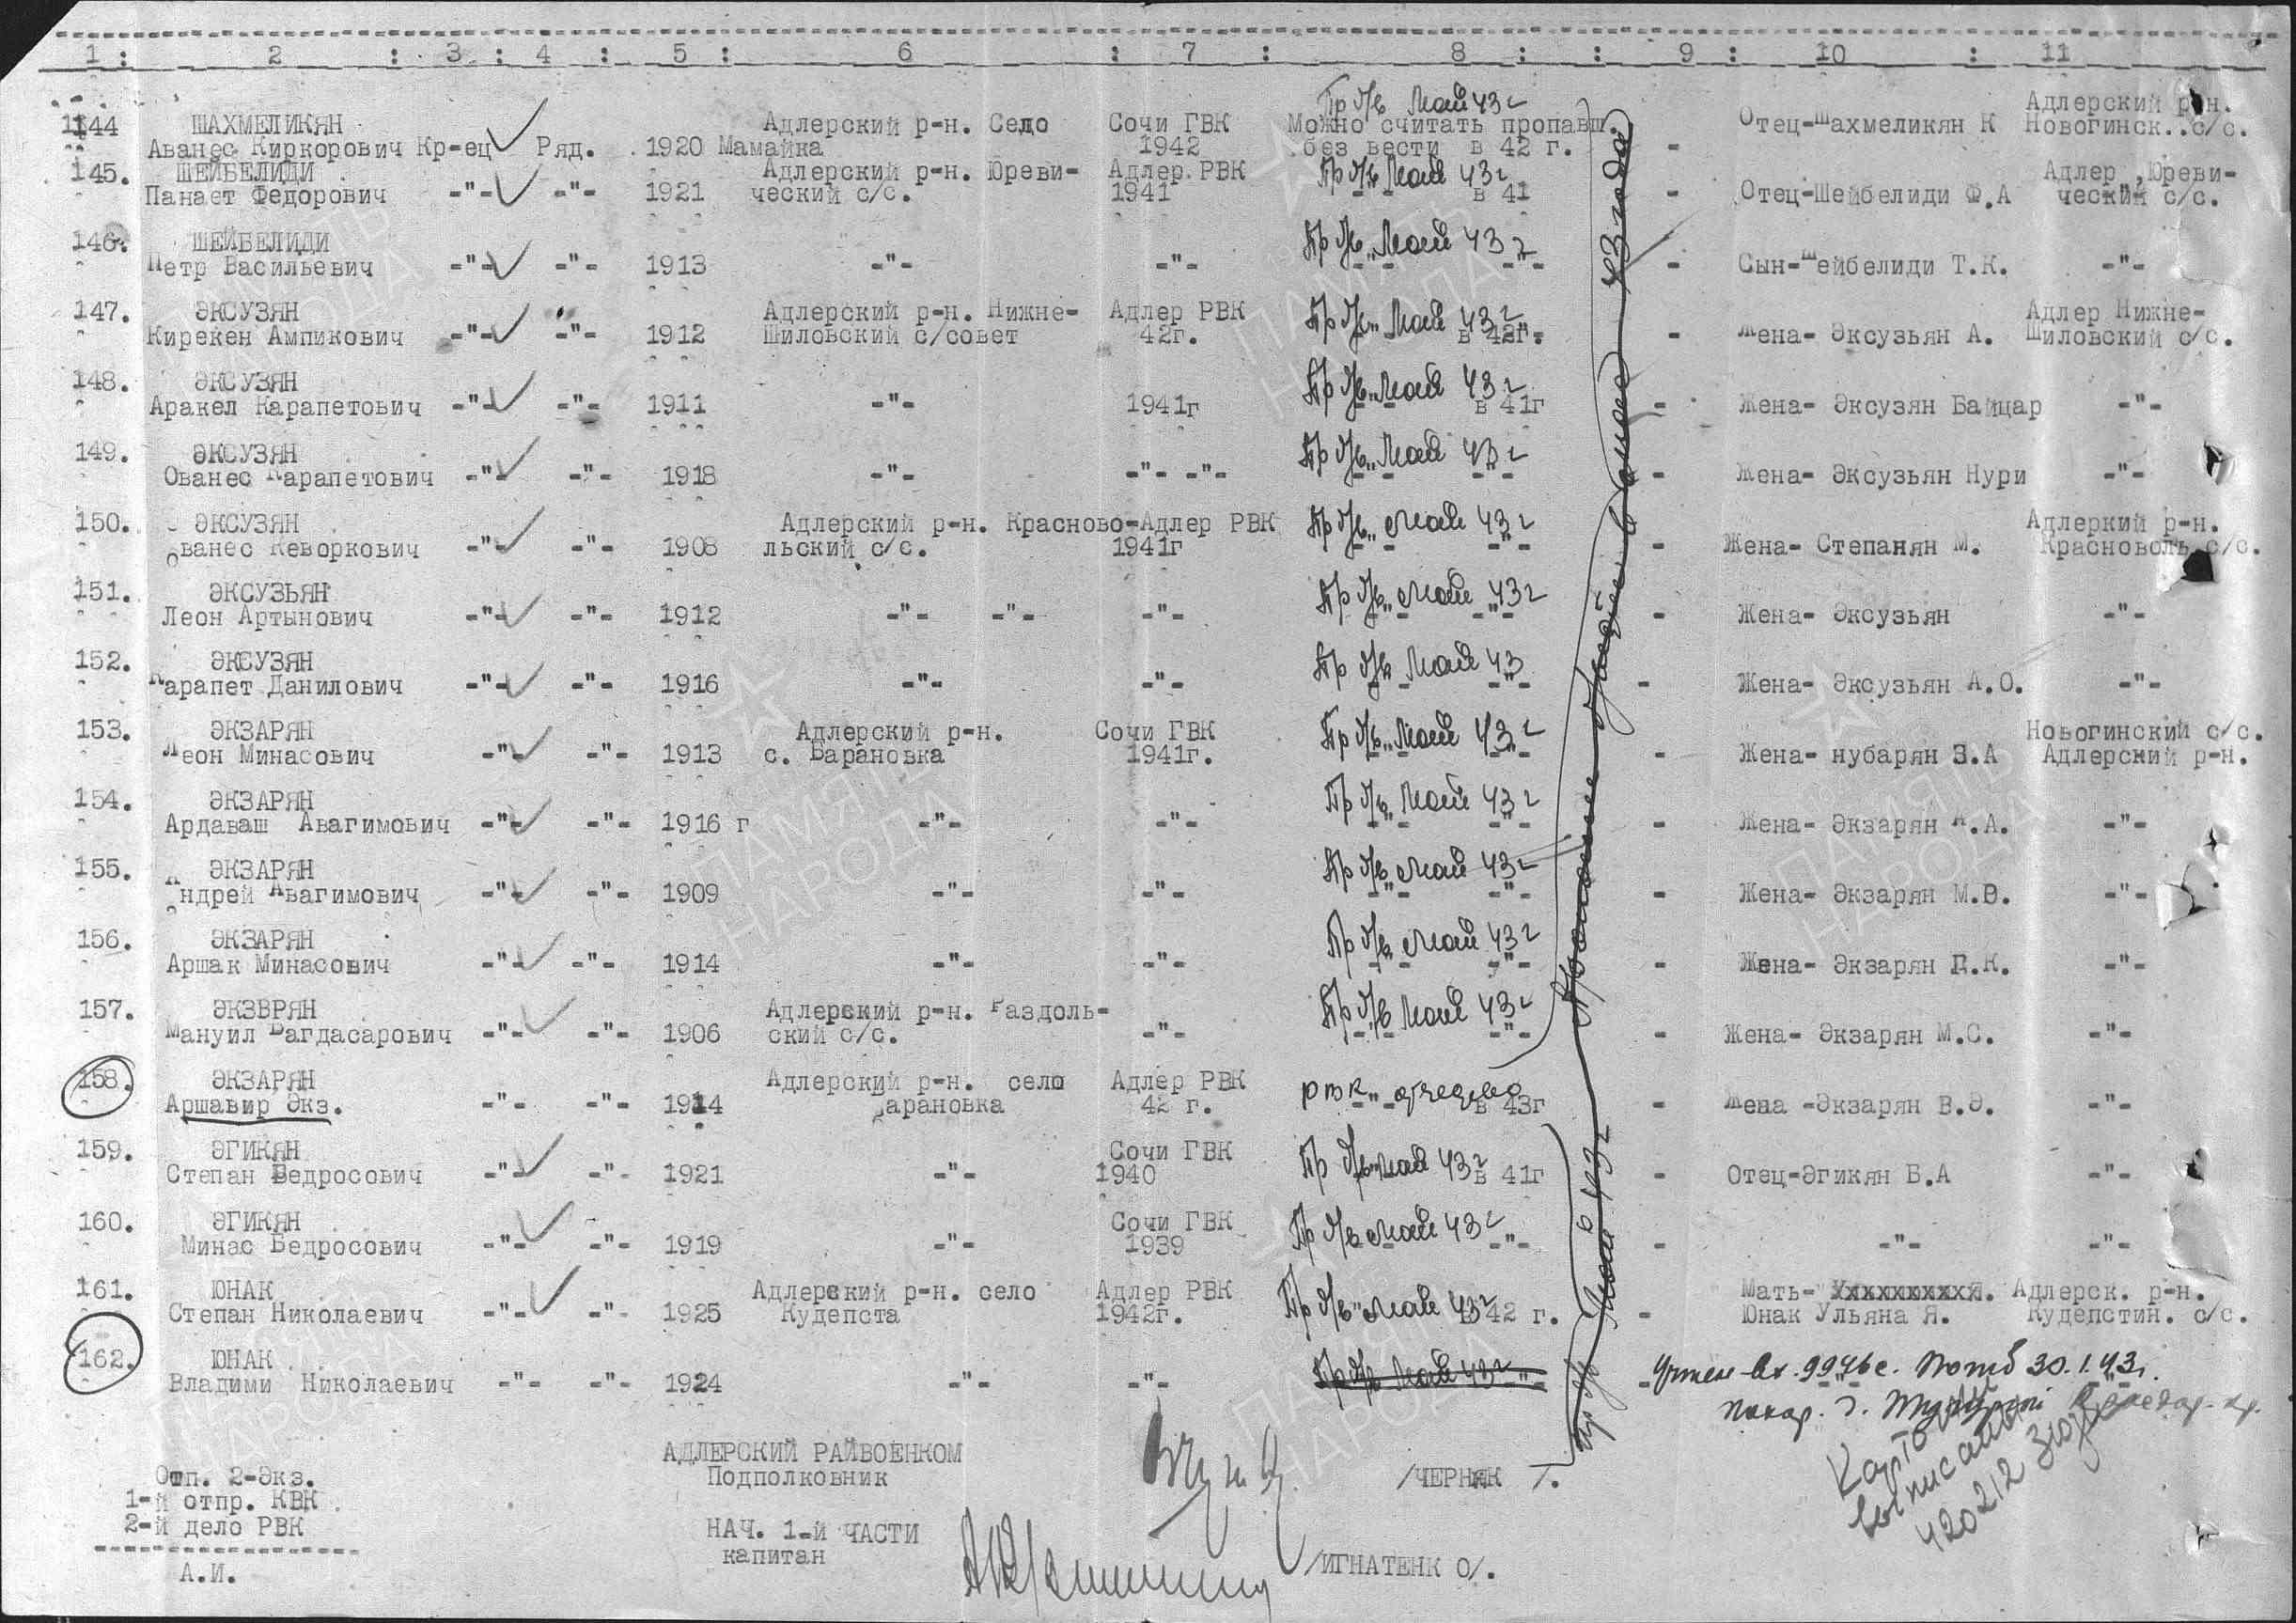 1 : 2 : 3 : 4 : 5 : 6 : 7 : 8 : : 9 : 10 : 11
Пр б/в Май 43 г
144 ШАХМЕЛИКЯН Адлерский р-н. Село Сочи ГВК Можно считать пропавш Отец-Шахмеликян К Адлерский р-н. Новогинск..с/с.
Аванес Киркорович Кр-ец Ряд. 1920 Мамайка 1942 без вести в 42 г. -
145. ШЕЙБЕЛИДИ Адлерский р-н. Юреви- Адлер.РВК Пр б/в Май 43 г Адлер ,Юреви-
Панает Федорович -"- -"- 1921 ческий с/с. 1941 в 41 - Отец-Шейбелиди Ф.А ческий с/с.
146. ШЕЙБЕЛИДИ Пр б/в Май 43 г
Петр Васильевич -"- -"- 1913 -"- -"- -"- - Сын-Шейбелиди Т.К. -"-
147. ЭКСУЗЯН Адлерский р-н. Нижне- Адлер РВК Пр б/в Май 43 г Адлер Нижне-
Кирекен Ампикович -"- -"- 1912 Шиловский с/совет 42г. в 42г. - Жена- Эксузьян А. Шиловский с/с.
148. ЭКСУЗЯН Пр б/в Май 43 г
Аракел Карапетович -"- -"- 1911 -"- 1941г в 41г - Жена- Эксузян Байцар -"-
149. ЭКСУЗЯН Пр б/в Май 43 г
Ованес Карапетович -"- -"- 1918 -"- -"- -"- -"- - Жена- Эксузьян Нури -"-
150. ЭКСУЗЯН Адлерский р-н. Красново-Адлер РВК Пр б/в Май 43 г Адлеркий р-н.
Ованес Кеворкович -"- -"- 1908 льский с/с. 1941г -"- - Жена- Степанян М. Красноволь с/с.
151. ЭКСУЗЬЯН Пр б/в Май 43 г
Леон Артынович -"- -"- 1912 -"- -"- -"- -"- - Жена- Эксузьян -"-
152. ЭКСУЗЯН Пр б/в Май 43
Карапет Данилович -"- -"- 1916 -"- -"- -"- - Жена- Эксузьян А.О. -"-
153. ЭКЗАРЯН Адлерский р-н. Сочи ГВК Пр б/в Май 43 г Новогинский с/с.
Леон Минасович -"- -"- 1913 с. Барановка 1941г. -"- - Жена- нубарян З.А Адлерский р-н.
154. ЭКЗАРЯН Пр б/в Май 43 г
Ардаваш Авагимович -"- -"- 1916 г -"- -"- -"- - Жена- Экзарян А.А. -"-
155. ЭКЗАРЯН Пр б/в Май 43 г
Андрей Авагимович -"- -"- 1909 -"- -"- -"- - Жена- Экзарян М.В. -"-
156. ЭКЗАРЯН Пр б/в Май 43 г
Аршак Минасович -"- -"- 1914 -"- -"- -"- - Жена- Экзарян П.К. -"-
157. ЭКЗВРЯН Адлерский р-н. Раздоль- Пр б/в Май 43 г
Мануил Багдасарович -"- -"- 1906 ский с/с. -"- -"- - Жена- Экзарян М.С. -"-
158. ЭКЗАРЯН Адлерский р-н. село Адлер РВК
Аршавир Экз. -"- -"- 1914 Барановка 42 г. в 43г - Жена -Экзарян В.Э. -"-
159. ЭГИКЯН Сочи ГВК Пр б/в Май 43 г
Степан Бедросович -"- -"- 1921 -"- 1940 в 41г - Отец-Эгикян Б.А -"-
160. ЭГИКЯН Сочи ГВК Пр б/в Май 43 г
Минас Бедросович -"- -"- 1919 -"- 1939 -"- - -"- -"-
161. ЮНАК Адлерский р-н. село Адлер РВК Мать- Адлерск. р-н.
Степан Николаевич -"- -"- 1925 Кудепста 1942г. Пр б/в Май 43 г 42 г. - Юнак Ульяна Я. Кудепстин. с/с.
162. ЮНАК Пр б/в Май 43 г Учтен Вх. 9946с. Погиб 30.1.43г.
Владими Николаевич -"- -"- 1924 -"- -"- -"- -
похор. г. Краснодар. кр.
Пропавшие без вести в мае 43 года
Пр б/в Май 43 г
Карточки выписаны
420212
АДЛЕРСКИЙ РАЙВОЕНКОМ
Подполковник /ЧЕРНЯК /.
Отп. 2-Экз.
1-й отпр. КВК
2-й дело РВК
НАЧ. 1-й ЧАСТИ
капитан /ИГНАТЕНК О/.
А.И.
ПАМЯТЬ НАРОДА